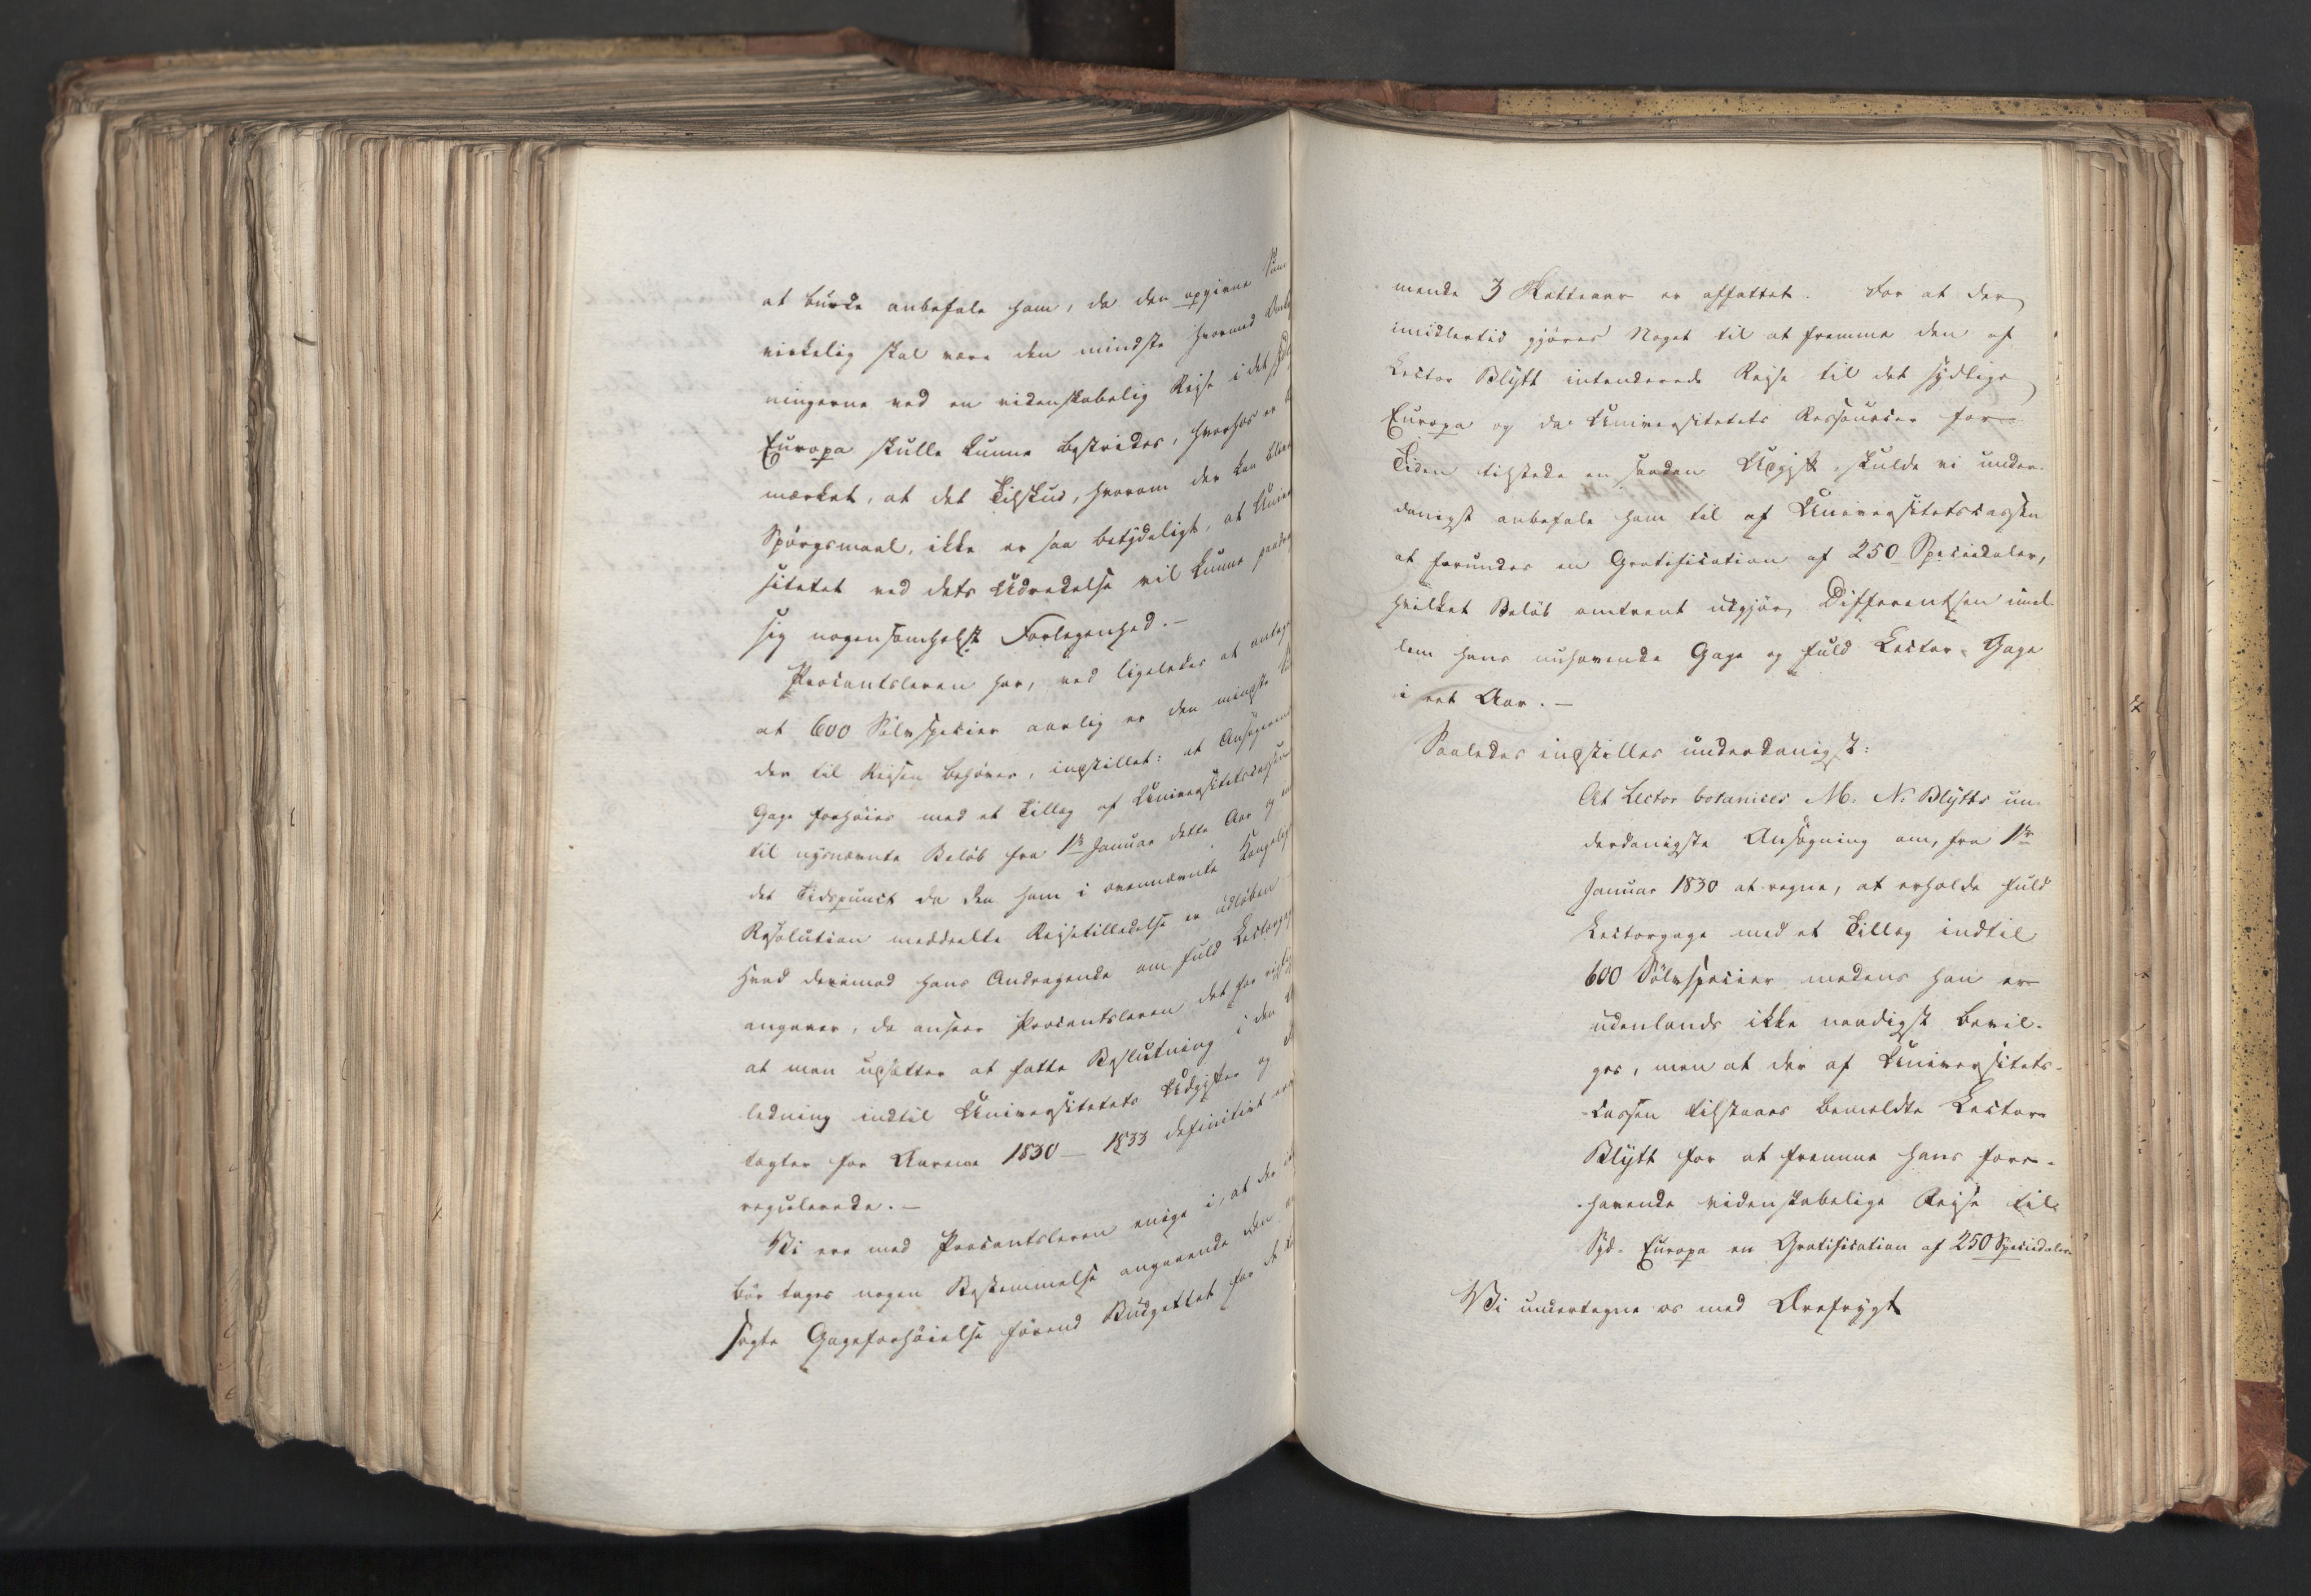 at burde anbefale ham, da den opgivne Sum
virkelig skal være den mindste hvormed
ningerne ved en videnskabelig Rejse i det
Europa skulle kunne bestrides, hvorhos er
mærket, at det Tilskud, hvorom der kan blive
Spørgsmaal, ikke er saa betydeligt, at Univer
sitetet ved dets Udredelse vil kunne paadrag
sig nogensomhelst Forlegenhed.—
Procantsleren har, ved ligeledes at antage
at 600 Sølvspecier aarlig er den mindste
der til Reisen behøves, indstillet: at Ansøgerens
Gage forhøies med et Tillæg af Universitetscassen
til nysnævnte Beløb fra 1ste Januar dette Aar og
det Tidspunct da den ham i ovennævnte Kongelige
Resolution meddeelte Rejsetilladelse er udløben
Hvad derimod hans Andragende om fuld Lectorgage
angaaer, da anseer Procantsleren det for rigtig
at man udsætter at fatte Beslutning i den
ledning indtil Universitetets Udgifter og
tægter for Aarene 1830 — 1833 definitivt
regulerede.—
Vi ere med Procantsleren enige i, at der
bør tages nogen Bestemmelse angaaende den
søgte Gageforhøielse førend Budgettet for de
mende 3 Aatteaar er affattet. For at der
imidlertid gjøres Noget til at fremme den af
Lector Blytt intenderede Rejse til det sydlige
Europa og da Universitetets Ressourcer for
Tiden tilstede en saadan Udgift, skulde vi under-
danigst anbefale ham til af Universitetscassen
at forundes en Gratification af 250 Speciedaler,
hvilket Beløb omtrent udgjør Differentsen imel-
lem hans nuhavende Gage og fuld Lector-Gage
i eet Aar.—
Saaledes indstilles underdanigst:
At Lector botanices M. N. Blytts un-
derdanigste Ansøgning om, fra 1ste
Januar 1830 at regne, at erholde fuld
Lectorgage med et Tillæg indtil
600 Sølvspecier medens han er
udenlands ikke naadigst bevil-
ges, men at der af Universitets-
cassen tilstaaes bemeldte Lector
Blytt for at fremme hans fore-
havende videnskabelige Rejse til
Syd-Europa en Gratification af 250 Speciedaler
Vi undertegne os med Ærefrygt